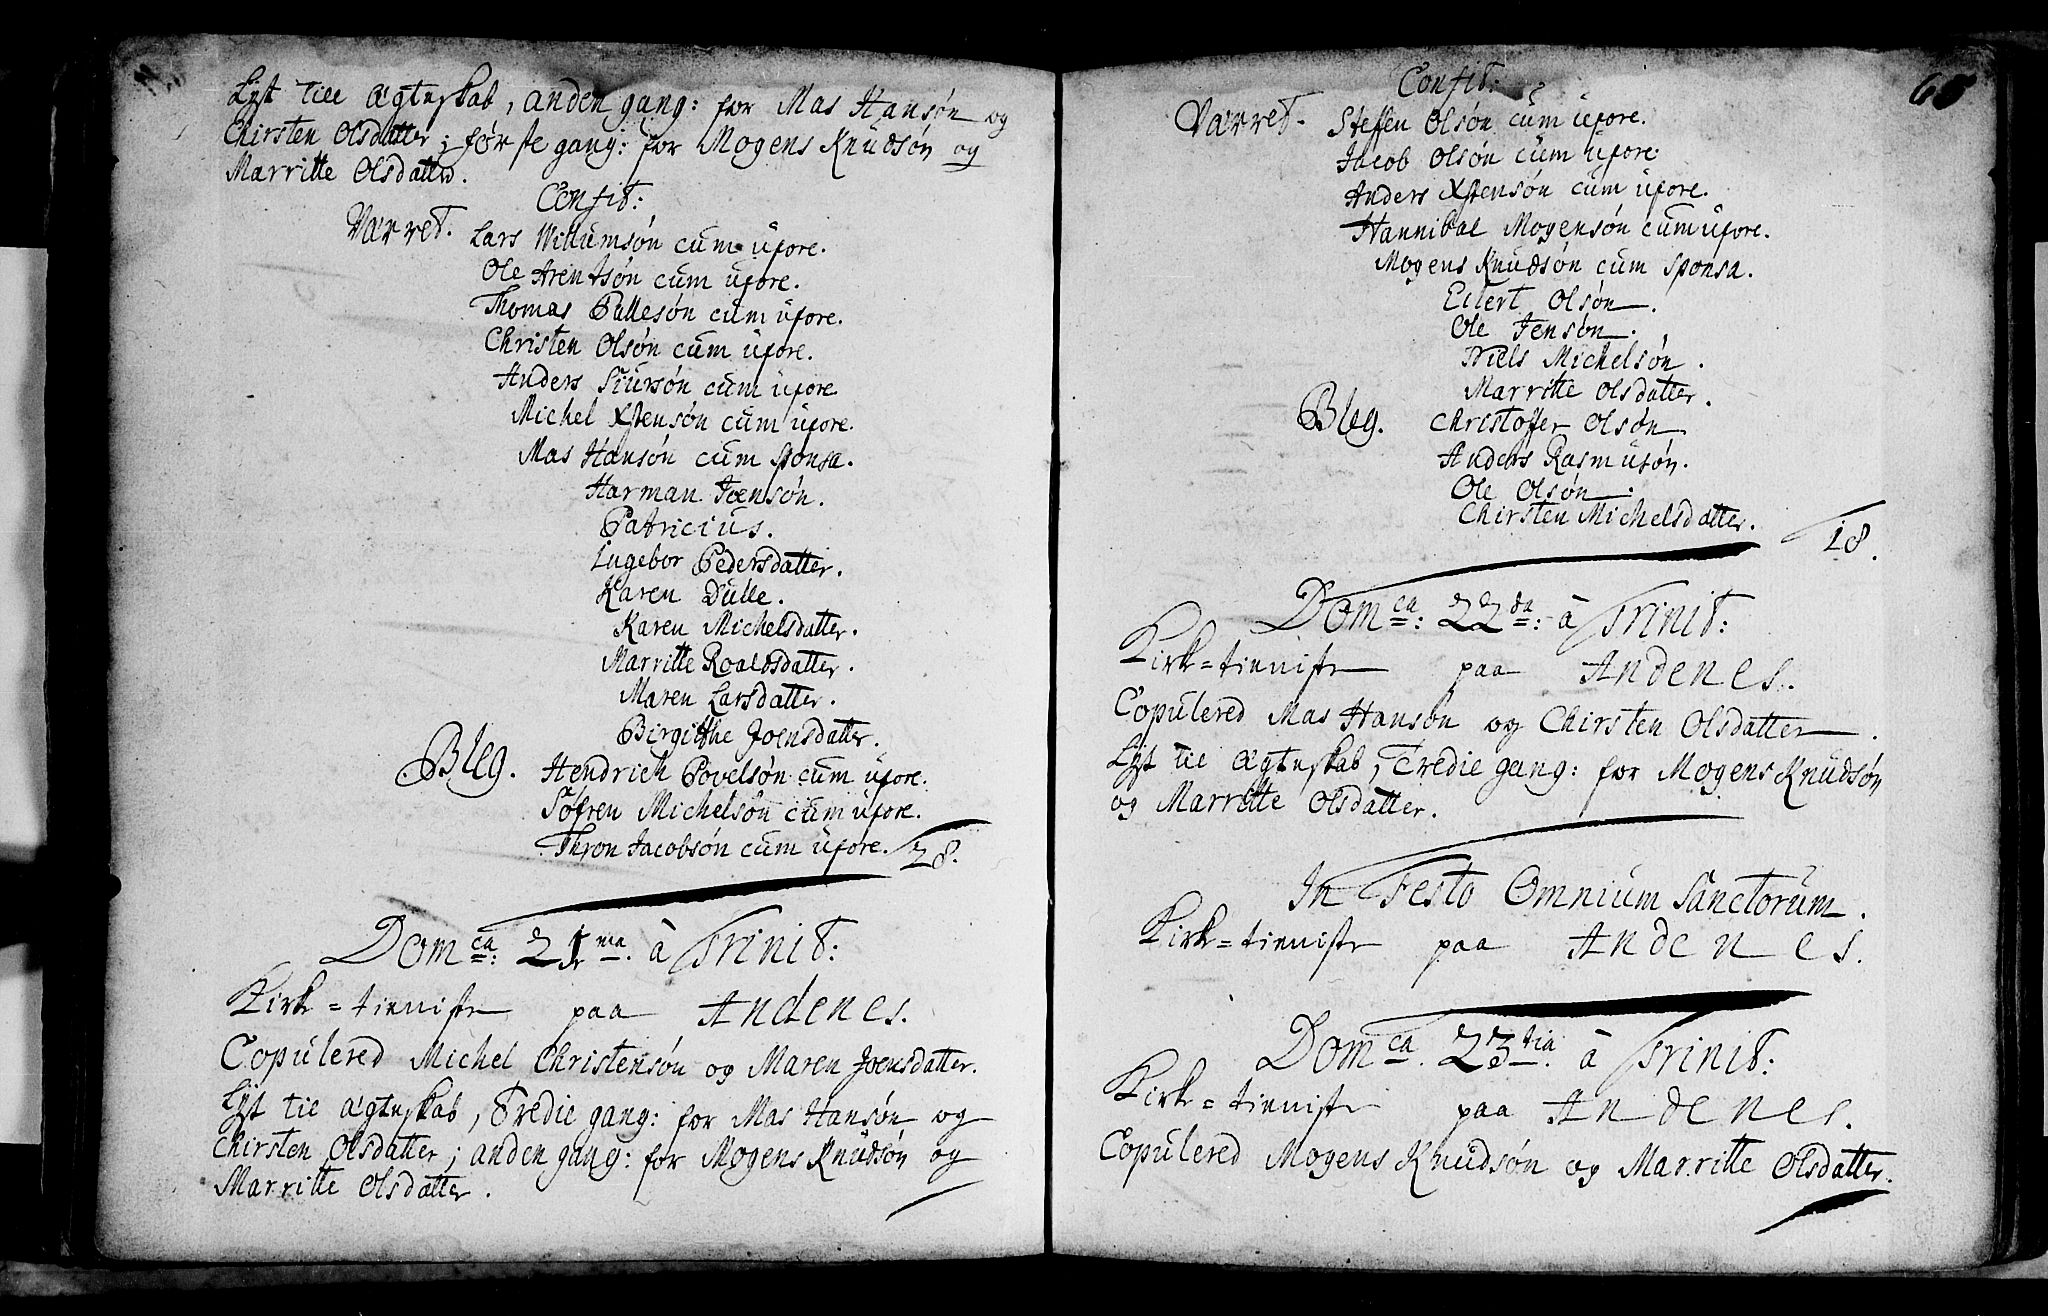 Lyst till Ægteskab, anden gang: for Mas Hansøn og
Chirsten Olsdatter; første gang: for Mogens Knudsøn og
Marritte Olsdatter.
Confit:
Værret. Lars Willumsøn cum uxore.
Ole Arentsøn cum uxore.
Thomas Pallesøn cum uxore.
Christen Olsøn cum uxore.
Anders Siursøn cum uxore
Michel Xstensøn cum uxore.
Mas Hansøn cum sponsa.
Harman Joensøn.
Patricius.
Ingebor Pedersdatter.
Karen Dulle.
Karen Michelsdatter.
Marritte Roaldsdatter.
Maren Larsdatter.
Birgitthe Joensdatter.
Bleg. Hendrich Povelsøn cum uxore.
Søfren Michelsøn cum uxore.
Thron Jacobsøn cum uxore. 28.
Dom ca: 21 ma. à Trinit:
Kirke=tieniste paa Andenes.
Copulered Michel Christensøn og Maren Joensdatter.
Lyst til Ægteskab, Tredie gang: for Mas Hansøn og
Chirsten Olsdatter; anden gang: for Mogens Knudsøn og
Marritte Olsdatter.
65
Confit:
Værret. Steffen Olsøn cum uxore.
Jacob Olsøn cum uxore.
Anders Xstensøn cum uxore.
Hannibal Mogensøn cum uxore.
Mogens Knudsøn cum sponsa.
Eilert Olsøn.
Ole Jensøn.
Niels Michelsøn.
Marritte Olsdatter.
Bleg. Christoffer Olsøn
Anders Rasmusøn.
Ole Olsøn.
Chirsten Michelsdatter. 18.
Dom ca: 22 da: à Trinit:
Kirke=tieniste paa Andenes.
Copulered Mas Hansøn og Chirsten Olsdatter.
Lyst til Ægteskab, Tredie gang: for Mogens Knudsøn
og Marritte Olsdatter.
In Festo Omnium Sanctorum.
Kirke=tieniste paa Andenes.
Dom ca. 23 tia. à Trinit:
Kirke=tieniste paa Andenes.
Copulered Mogens Knudsøn og Marritte Olsdatter.